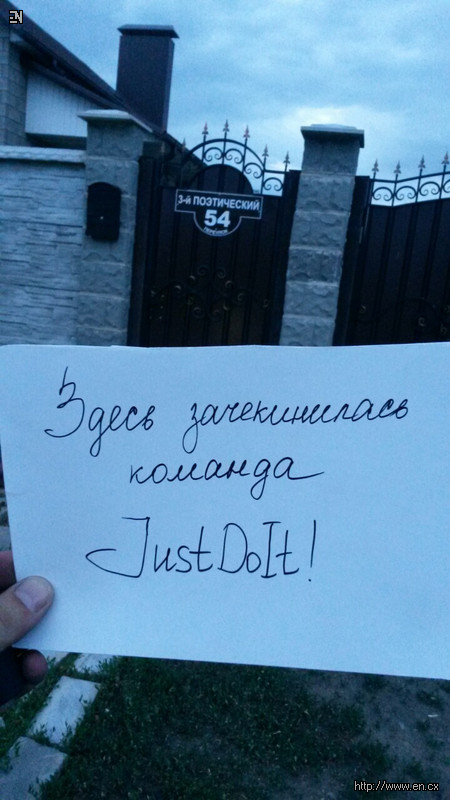 EN
3-й ПОЭТИЧЕСКИЙ
54
Здесь зачекинилась
команда
JustDoIt!
http://www.en.cx